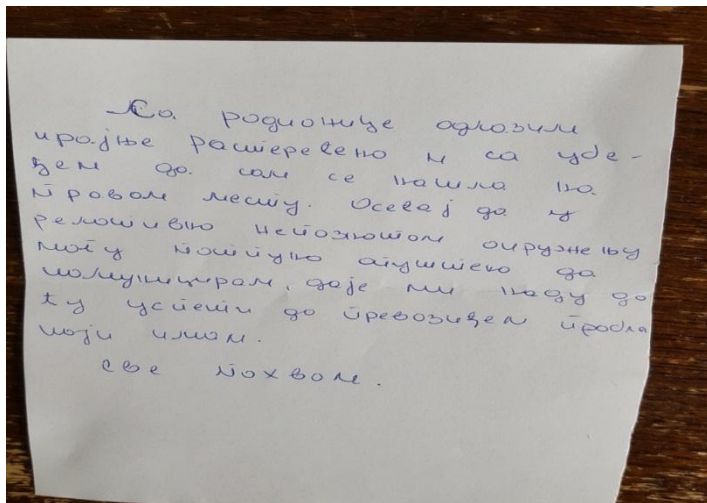 Са радионице одлазим
крајње растерећено и са убе-
ђем да сам се нашла на
правом месту. Осећај да у
релативно непознатом окружењу
могу потпуно опуштено да
комуницирам, даје ми наду да
ћу успети да превазиђем пробл
који имам.
Све похвале.